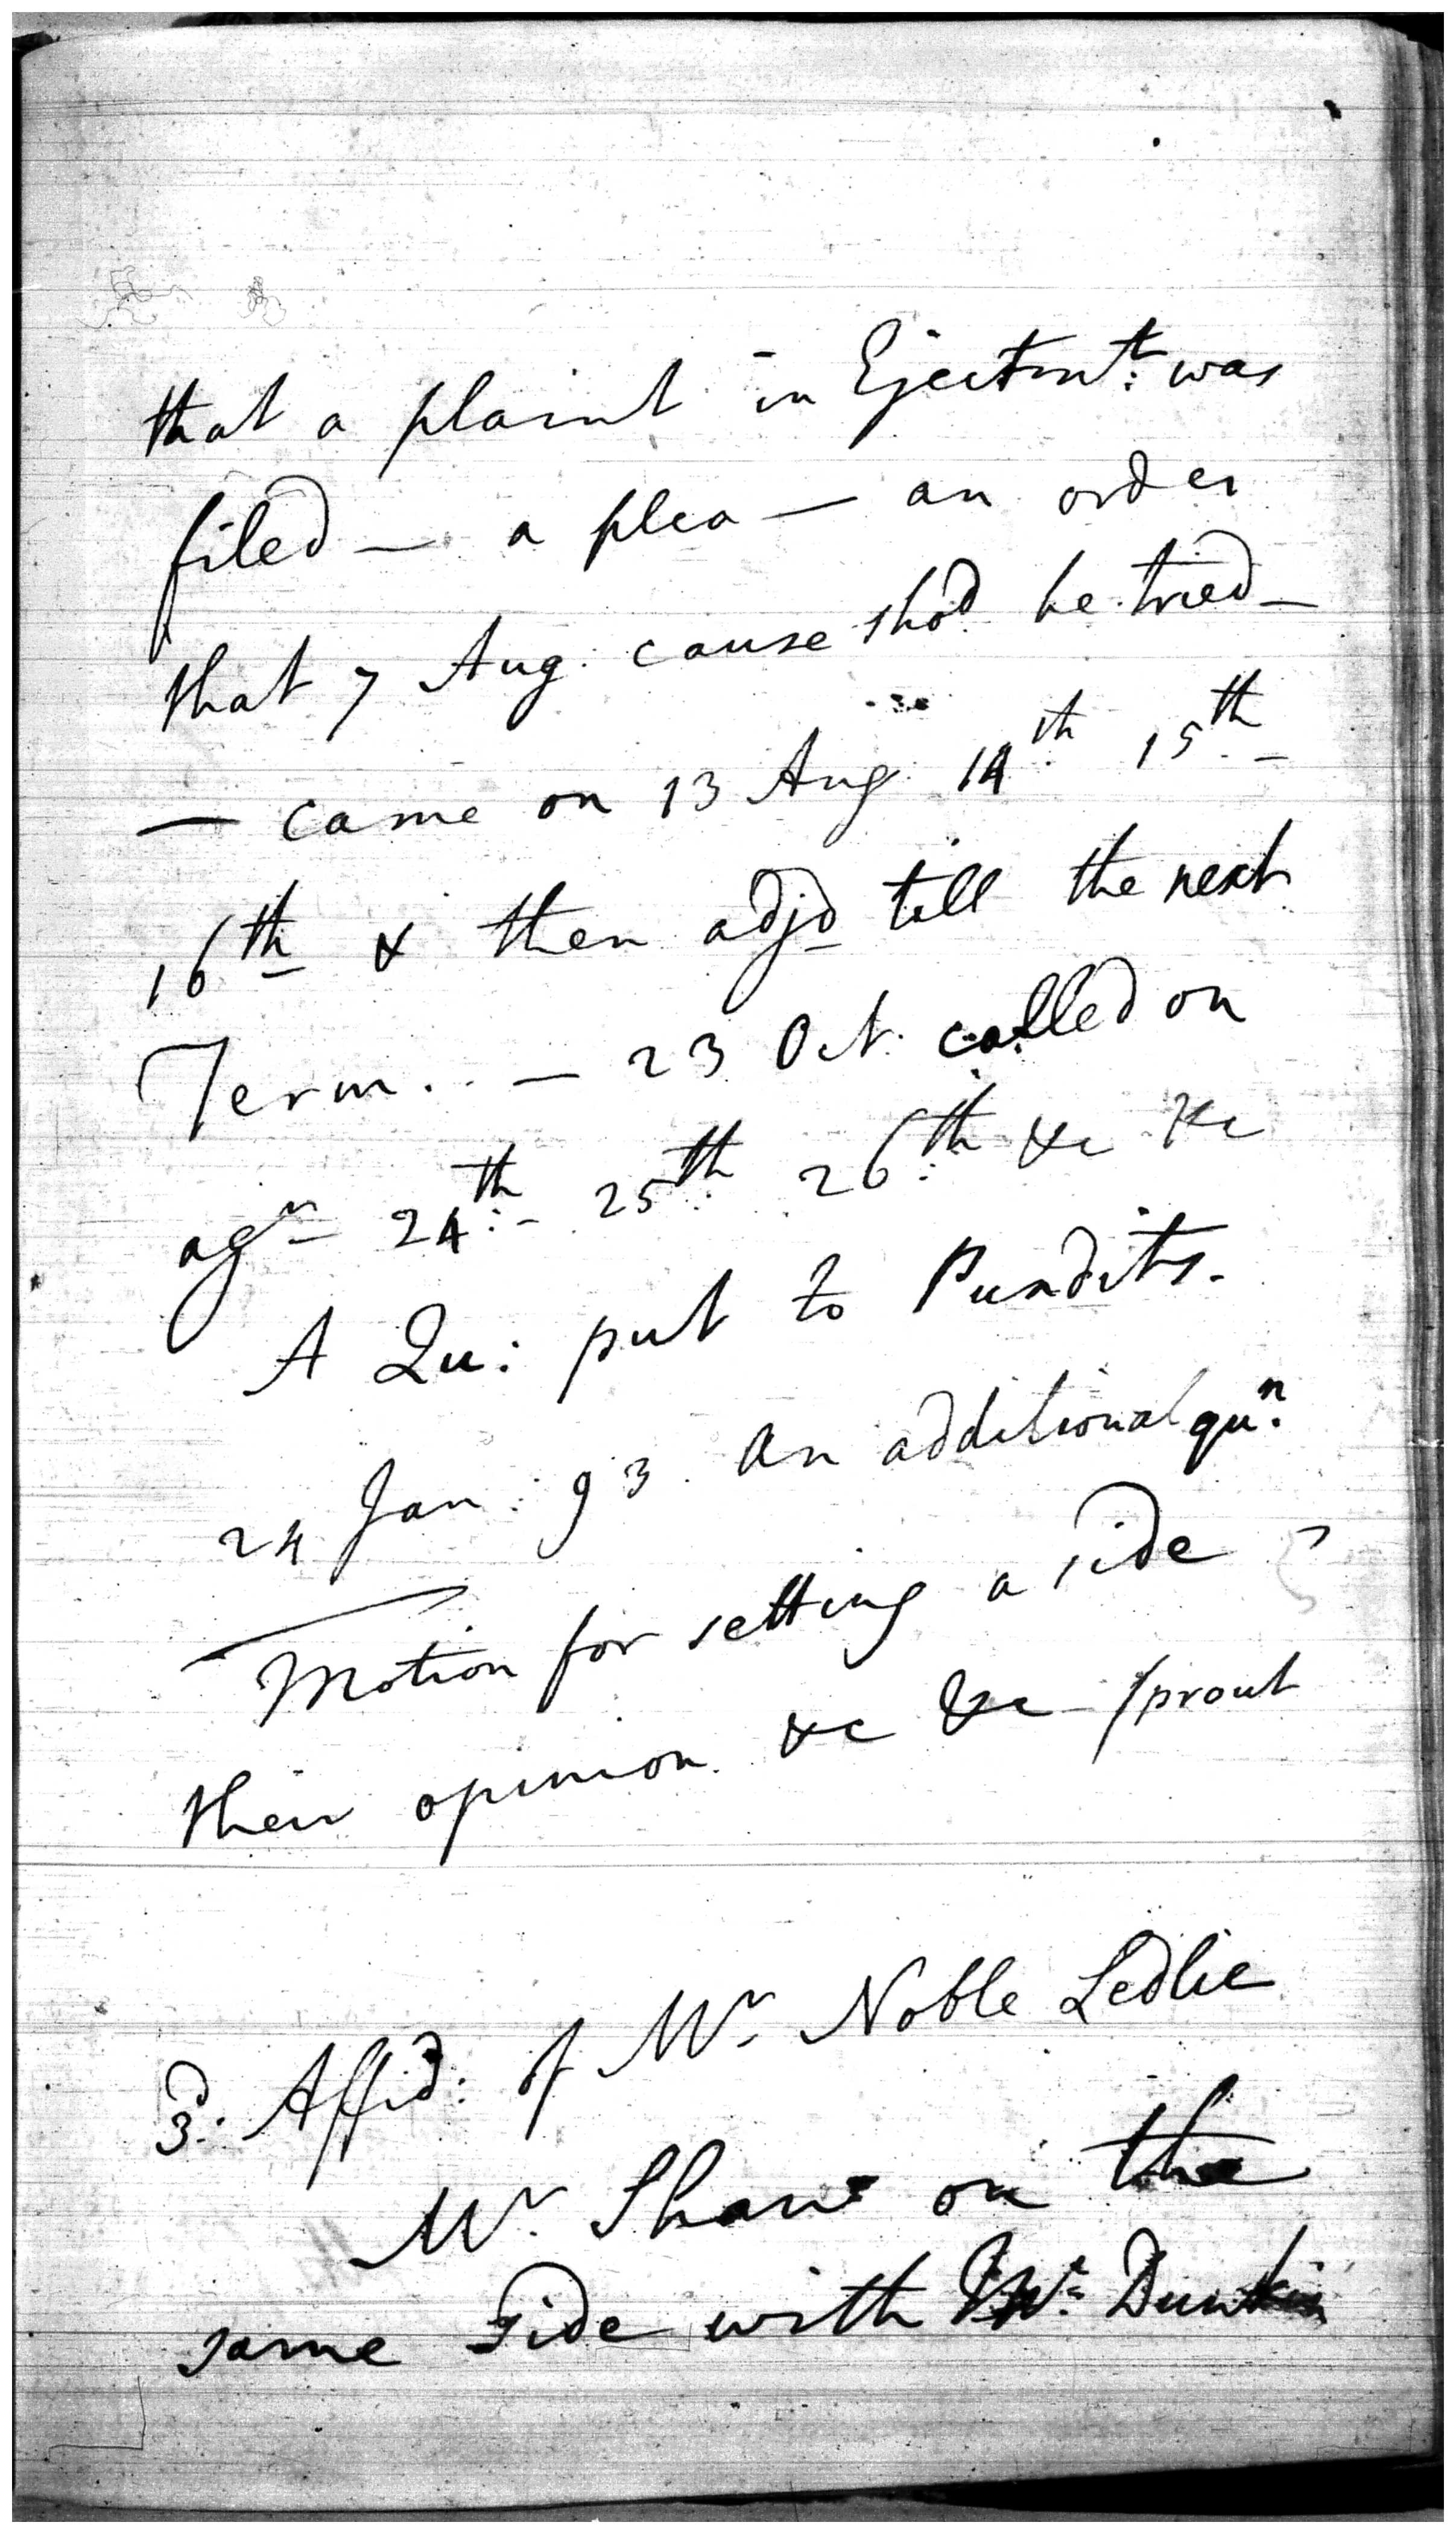 that a plaint in Ejectmt: was
filed — a plea — an order
that 7 Aug. cause shod be tried —
— came on 13 Aug 14th 15th —
16th & then adjd till the next
Term. . — 23 Oct. called on
agn 24th: - 25th: 26th: &c &c
A Qu: put to Pundits.
24 Jan: 93. An additional qun.
Motion for setting a side
their opinion. &c &c — /prout
3d: Affid: of Mr Noble Ledlie
Mr. Shaw on the
same side with Mr. Dunkin